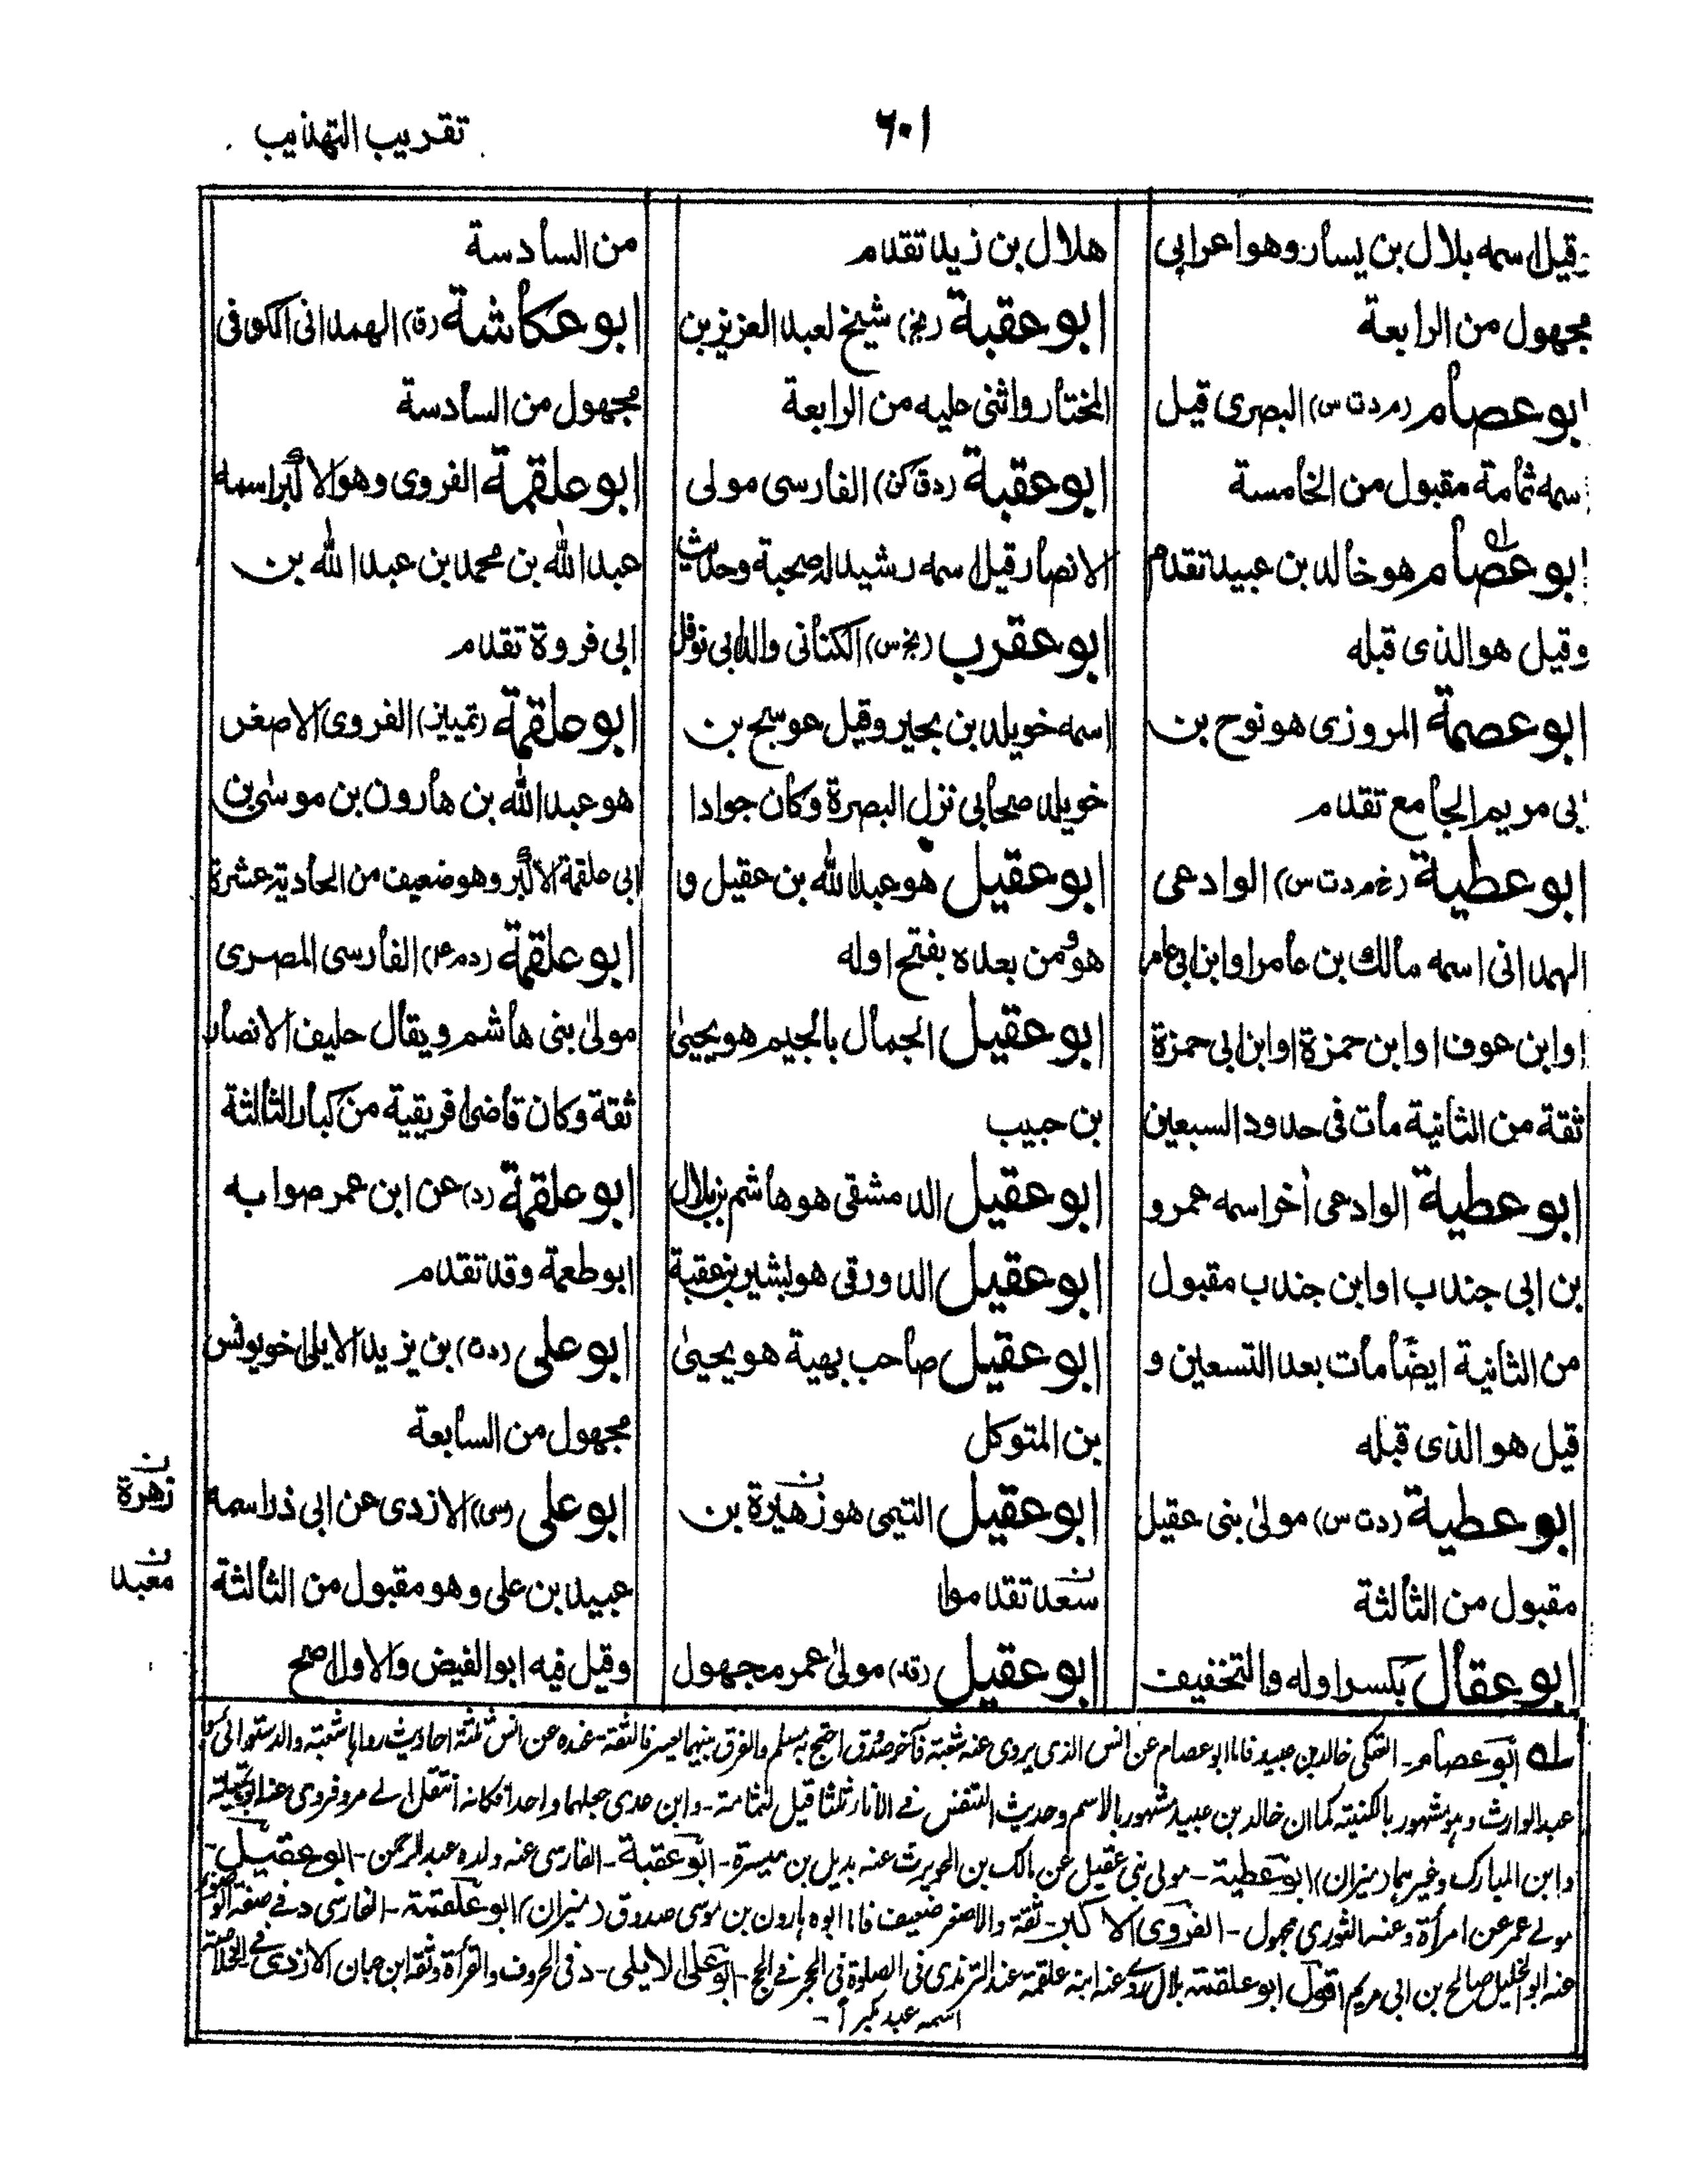 تقريب التهذيب
٦٠١
قيل اسمه بلال بن يسار وهو اعرابي
مجهول من الرابعة
ابو عصام (م د ت س) البصرى قيل
اسمه ثمامة مقبول من الخامسة
ابو عصام هو خالد بن عبيد تقدم
وقيل هو الذى قبله
ابو عصمة المروزى هو نوح بن
ابى مريم الجامع تقدم
ابو عطية (خ م د ت س) الوادعى
الهمدانى اسمه مالك بن عامر او ابن ابى عامر
او ابن عوف او ابن حمزة او ابن ابى حمزة
ثقة من الثانية مات فى حدود السبعين
ابو عطية الوادعى اخر اسمه عمرو
بن ابى جندب او ابن جندب مقبول
من الثانية ايضا مات بعد التسعين و
قيل هو الذى قبله
ابو عطية (د ت س) مولىٰ بنى عقيل
مقبول من الثالثة
ابو عقال بكسر اوله والتخفيف
هلال بن زيد تقدم
ابو عقبة (بخ) شيخ لعبد العزيز بن
المختار واثنى عليه من الرابعة
ابو عقبة (د ق كن) الفارسى مولى
الانصار قيل اسمه رشيد له صحبة وحديث
ابو عقرب (بخ س) الكنانى والد ابى نوفل
اسمه خويلد بن بجير وقيل عوسج بن
خويلد صحابى نزل البصرة وكان جوادا
ابو عقيل هو عبد الله بن عقيل و
هو ومن بعده بفتح اوله
ابو عقيل الجمال بالجيم هو يحيىٰ
بن حبيب
ابو عقيل الدمشقى هو هاشم بن بلال
ابو عقيل الدورقى هو بشير بن عقبة
ابو عقيل صاحب بهية هو يحيىٰ
بن المتوكل
ابو عقيل التيمى هو زهيرة بن
سعد تقدموا
ابو عقيل (قد) مولىٰ عمر مجهول
من السادسة
ابو عكاشة (ق) الهمدانى الكوفى
مجهول من السادسة
ابو علقمة الفروى وهو الاكبر اسمه
عبد الله بن محمد بن عبد الله بن
ابى فروة تقدم
ابو علقمة (تمييز) الفروى الاصغر
هو عبد الله بن هارون بن موسىٰ بن
ابى علقمة الاكبر وهو ضعيف من الحادية عشرة
ابو علقمة (ر م ٤) الفارسى المصرى
مولىٰ بنى هاشم ويقال حليف الانصار
ثقة وكان قاضى افريقية من كبار الثالثة
ابو علقمة (د) عن ابن عمر صوابه
ابو طعمة وقد تقدم
ابو على (د ت) بن يزيد الايلى اخو يونس
مجهول من السابعة
ابو على (سى) الازدى عن ابى ذر اسمه
عبيد بن على وهو مقبول من الثالثة
وقيل فيه ابو الفيض والاول اصح
ن زهرة
ن معبد
ابو عصام - العتكى خالد بن عبيد فاما ابو عصام عن انس الذى يروى عنه شعبة فآخر صدوق احتج به مسلم والفرق بينهما يسير فالثقة - عنده عن انس ثلثة احاديث رواها شعبة والدستوائى
عبد الوارث وهو مشهور بالكنية كما ان خالد بن عبيد مشهور بالاسم وحديث التنفس فى الاناء ثلثا قيل لثمامة - وابن عدى جعلهما واحدا فكانه انتقل الى مرو فروى عنه ابو تميلة
وابن المبارك وغيرهما (ميزان) ابو عطية - مولى بنى عقيل عن مالك بن الحويرث عنه بديل بن ميسرة - ابو عقبة - الفارسى عنه ولده عبد الرحمن - ابو عقيل -
مولى عمر عن امرأة وعنه الثورى مجهول - الفروى الاكبر - ثقة والاصغر ضعيف فاما ابوه هارون بن موسى صدوق (ميزان) ابو علقمة - الفارسى د فى صفة الوضوء
عنه ابو الخليل صالح بن ابى مريم اقول ابو علقمة بلال عنه ابنه علقمة عند الترمذى فى الصلوة فى الحجر فى الحج - ابو على الايلى - د فى الحروف والقرأة وثقه ابن حبان الازدى فى الخلاصة
اسمه عبد مكبرا -